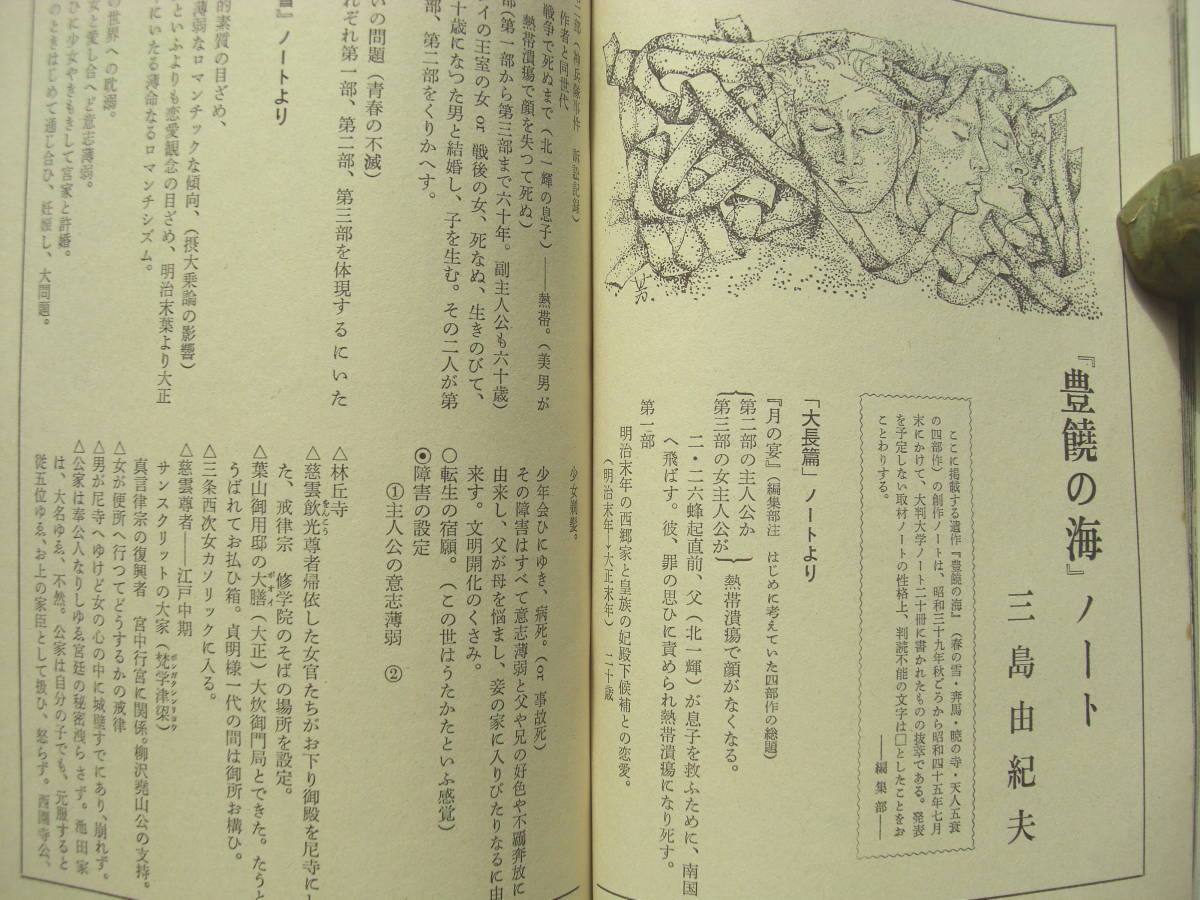 『豊饒の海』ノート
三島由紀夫
ここに掲載する遺作『豊饒の海』(春の雪・奔馬・暁の寺・天人五衰
の四部作)の創作ノートは、昭和三十九年秋ごろから昭和四十五年七月
末にかけて、大判大学ノート二十冊に書かれたものの抜萃である。発表
を予定しない取材ノートの性格上、判読不能の文字は□としたことをお
ことわりする。
――編集部――
「大長篇」ノートより
『月の宴』(編集部注 はじめに考えていた四部作の総題)
第二部の主人公か
第三部の女主人公が
熱帯潰瘍で顔がなくなる。
二・二六蜂起直前、父(北一輝)が息子を救ふために、南国
へ飛ばす。彼、罪の思ひに責められ熱帯潰瘍になり死す。
第一部
明治末年の西郷家と皇族の妃殿下候補との恋愛。
(明治末年―大正末年) 二十歳
作者と同世代
戦争で死ぬまで(北一輝の息子)――熱帯。(美男が
熱帯潰瘍で顔を失つて死ぬ)
部(第一部から第三部まで六十年。副主人公も六十歳)
イの王室の女 or 戦後の女、死なぬ、生きのびて、
十歳になつた男と結婚し、子を生む。その二人が第
部、第二部をくりかへす。
いの問題(青春の不滅)
れぞれ第一部、第二部、第三部を体現するにいた
』ノートより
的素質の目ざめ、
薄弱なロマンチックな傾向、(摂大乗論の影響)
といふよりも恋愛観念の目ざめ、明治末葉より大正
にいたる薄命なるロマンチシズム。
の世界への耽溺。
女と愛し合へど意志薄弱。
ひに少女やきもきして宮家と許婚。
のときはじめて通じ合ひ、妊娠し、大問題。
少女剃髪。
少年会ひにゆき、病死。(or 事故死)
その障害はすべて意志薄弱と父や兄の好色や不羈奔放に
由来し、父が母を悩まし、妾の家に入りびたりなるに由
来す。文明開化のくさみ。
○転生の宿願。(この世はうたかたといふ感覚)
◉障害の設定
①主人公の意志薄弱 ②
△林丘寺
△慈雲飲光尊者帰依した女官たちがお下り御殿を尼寺にし
た、戒律宗 修学院のそばの場所を設定。
△葉山御用邸の大膳(大正)大炊御門局とできた。たうと
うばれてお払ひ箱。貞明様一代の間は御所お構ひ。
△三条西次女カソリックに入る。
△慈雲尊者――江戸中期
サンスクリットの大家(梵学津梁)
真言律宗の復興者 宮中行宮に関係。柳沢堯山公の支持。
△女が便所へ行つてどうするかの戒律
△男が尼寺へゆけど女の心の中に城壁すでにあり、崩れず。
△公家は奉公人なりしゆゑ宮廷の秘密洩らさず。池田家
は、大名ゆゑ、不然。公家は自分の子でも、元服すると
従五位ゆゑ、お上の家臣として扱ひ、怒らず。西園寺公、